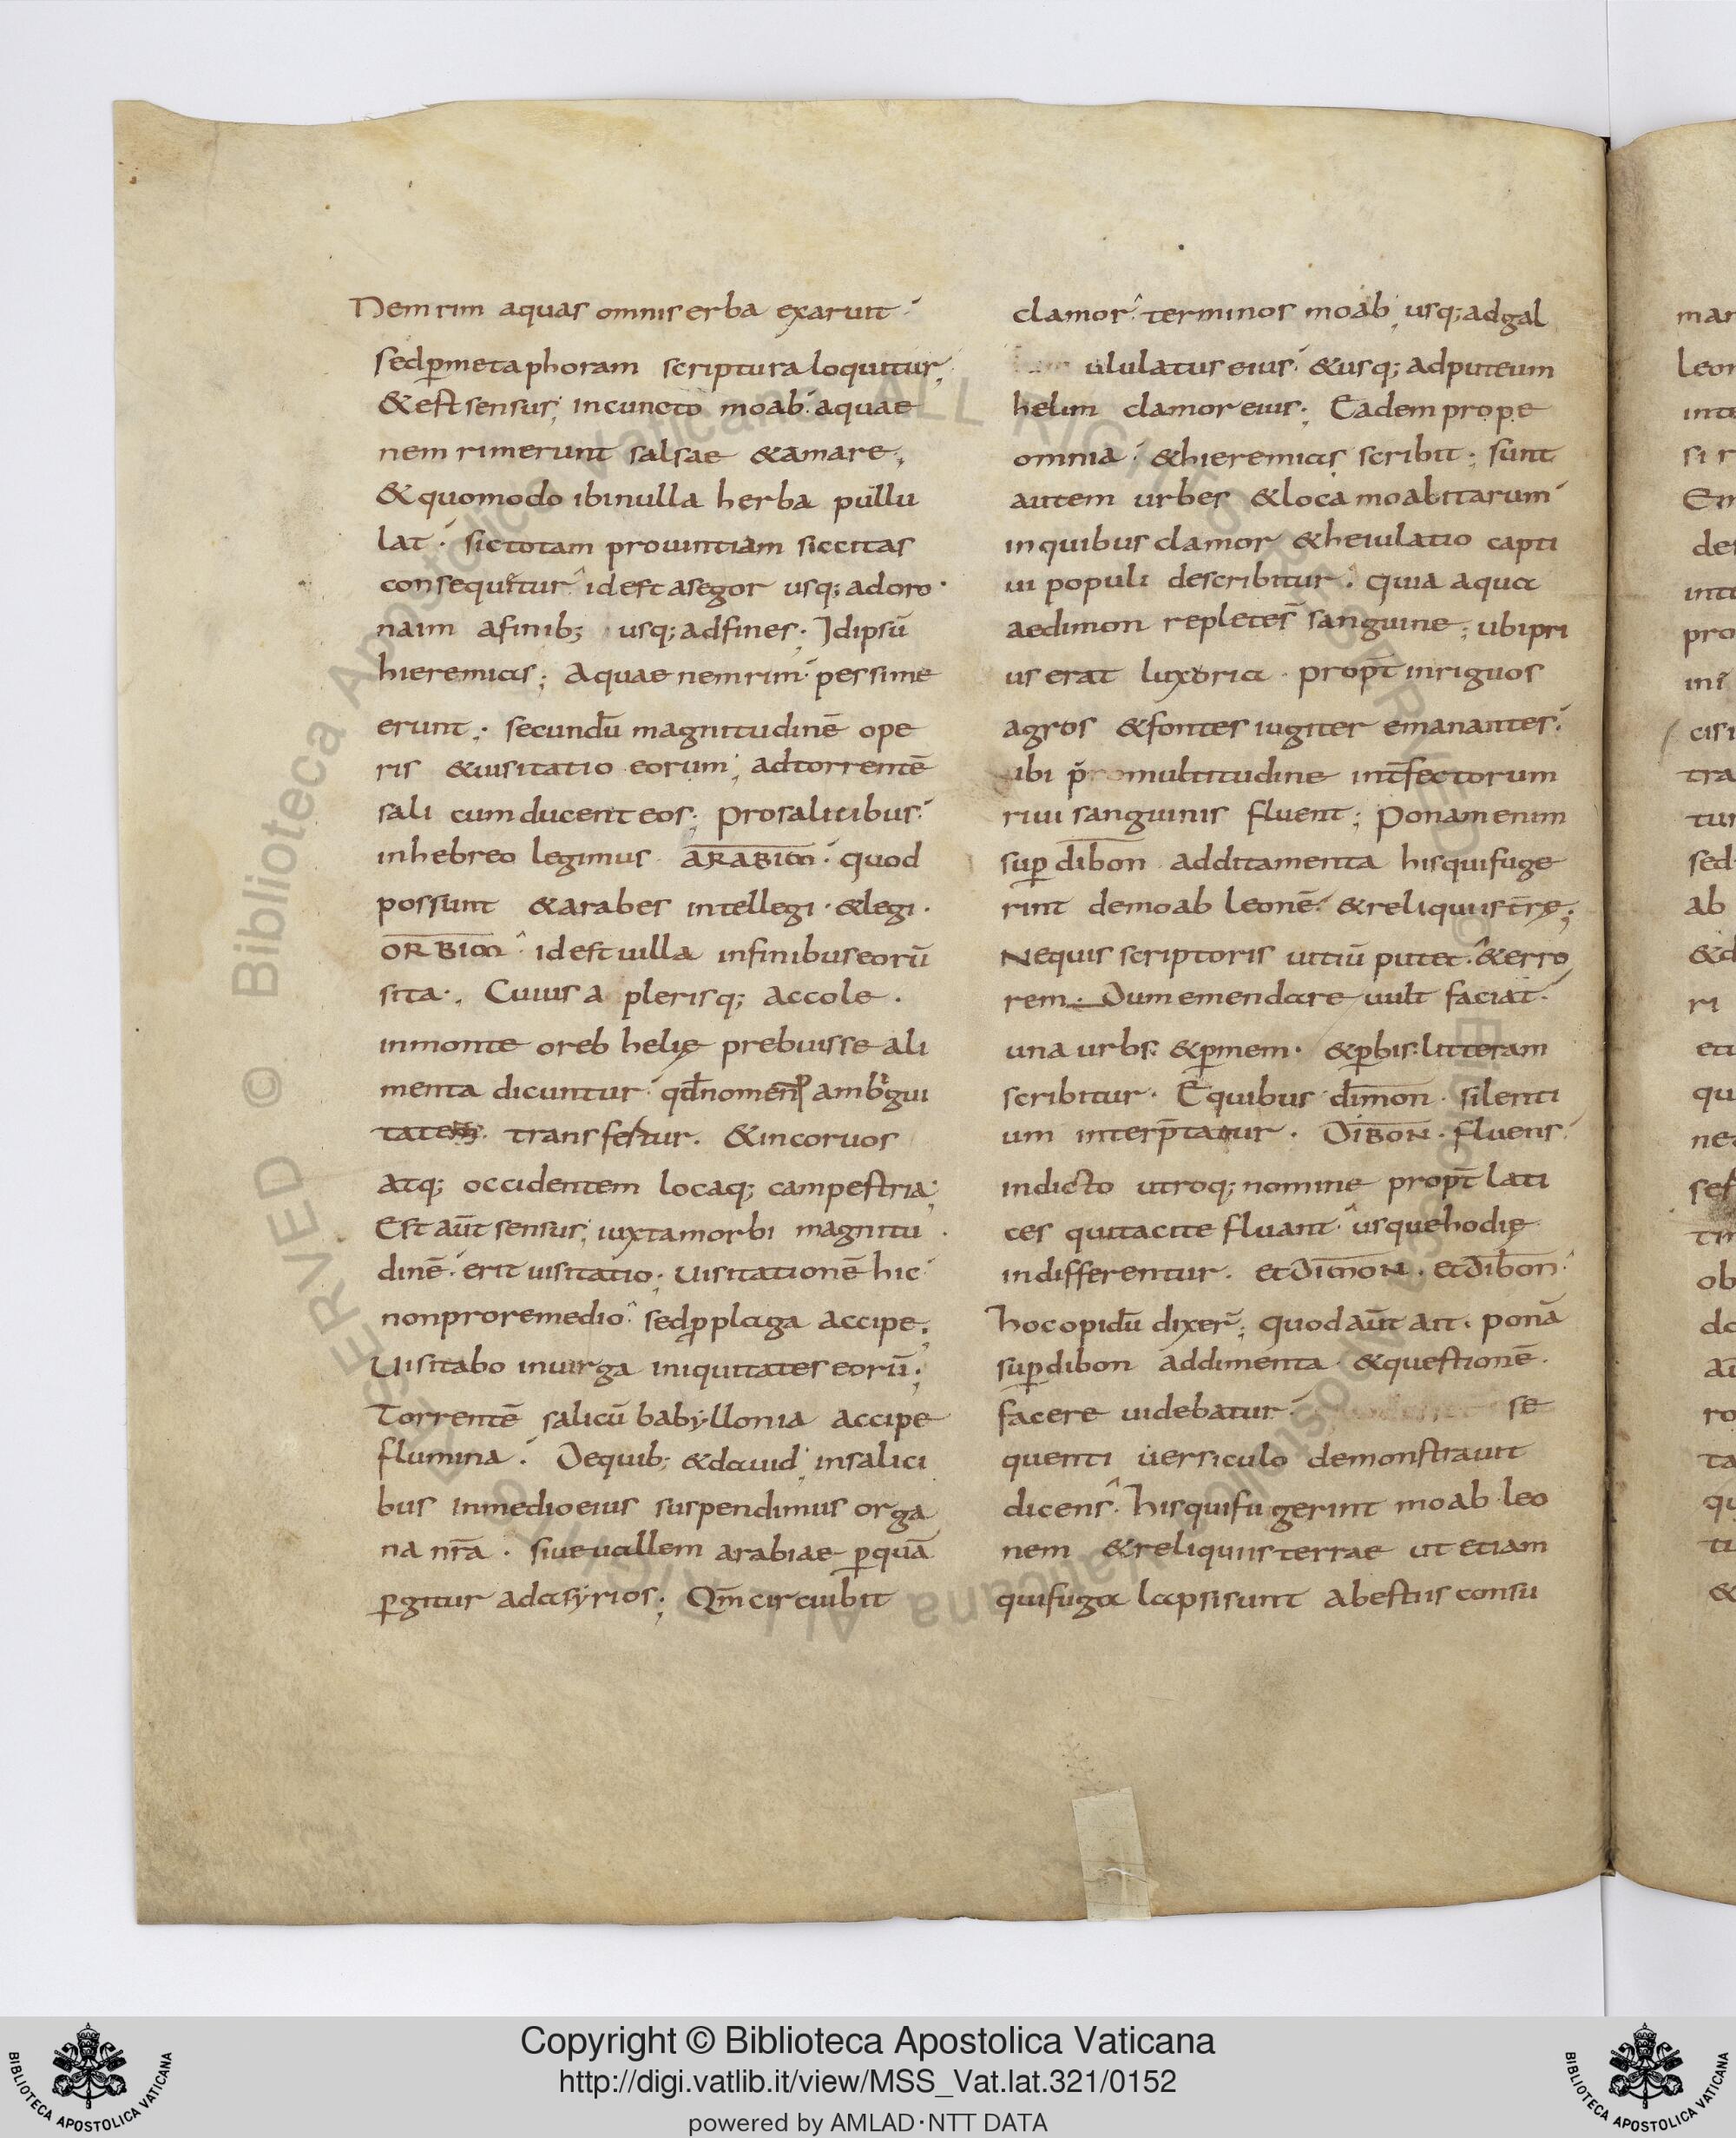 Nemrim aquas omnis erba exaruit
sed p̄ metaphoram scriptura loquitur,
& est sensus; in cuncto moab aquae
nemrim erunt salsae & amare;
& quomodo ibi nulla herba pullu
lat· sic totam prouintiam siccitas
consequitur id est a segor usq; ad oro·
naim a finib; usq; ad fines· Idipsū
hieremias; Aquae nemrim pessime
erunt; secundū magnitudinē ope
ris & uisitatio eorum; ad torrentē
sali cum ducent eos; pro salicibus
in hebreo legimus ARABIM· quod
possunt & arabes intellegi· & legi·
ORBIM id est uilla in finibus eorū
sita·, Cuius a plerisq; accole·
in monte oreb helię prebuisse ali
menta dicuntur qd̄ nomen p ambigui
tate transfertur· & in coruos
atq; occidentem locaq; campestria;
Est aūt sensus; iuxta morbi magnitu
dinē· erit uisitatio; uisitationē hic
non pro remedio sed p plaga accipe;
Uisitabo in uirga iniquitates eorū;
Torrentē salicū babyllonia accipe
flumina· De quib; & dauid; in salici
bus in medio eius suspendimus orga
na nr̄a· siue uallem arabiae p quā
pgitur ad asyrios; Qm̄ circuibit
clamor terminos moab, usq; ad gal
ululatus eius & usq; ad puteum
helim clamor eius; Eadem prope
omnia & hieremias scribit; sunt
autem urbes & loca moabitarum
in quibus clamor & heiulatio capti
ui populi describitur· Quia aqua
aedimon repletę s̄ sanguine; ubi pri
us erat luxoria· propt̄ inriguos
agros & fontes iugiter emanantes·
ubi p̄ multitudine int̄fectorum
riui sanguinis fluent; Ponam enim
sup dibon additamenta his qui fuge
rint de moab leonē· & reliquiis t̄rę;
Nequis scriptoris uitiū putet· & erro
rem· Dum emendare uult faciat·
una urbs & p mem· & p bis litteram
scribitur· E quibus dimon· silenti
um interp̄tatur· DIBON· fluens·
in dicto utroq; nomine propt̄ lati
ces qui tacite fluant· usque hodię
indifferentur· et DIMON· et Dibon
hoc opidū dixer̄; quod aūt ait· ponā
sup dibon addimenta & questionē·
facere uidebatur· se
quenti uersiculo demonstrauit
dicens· his qui fugerint moab leo
nem & reliquiis terrae ut etiam
qui fuga lapsi sunt a bestiis consu
Copyright © Biblioteca Apostolica Vaticana
http://digi.vatlib.it/view/MSS_Vat.lat.321/0152
powered by AMLAD·NTT DATA
BIBLIOTECA APOSTOLICA VATICANA
BIBLIOTECA APOSTOLICA VATICANA